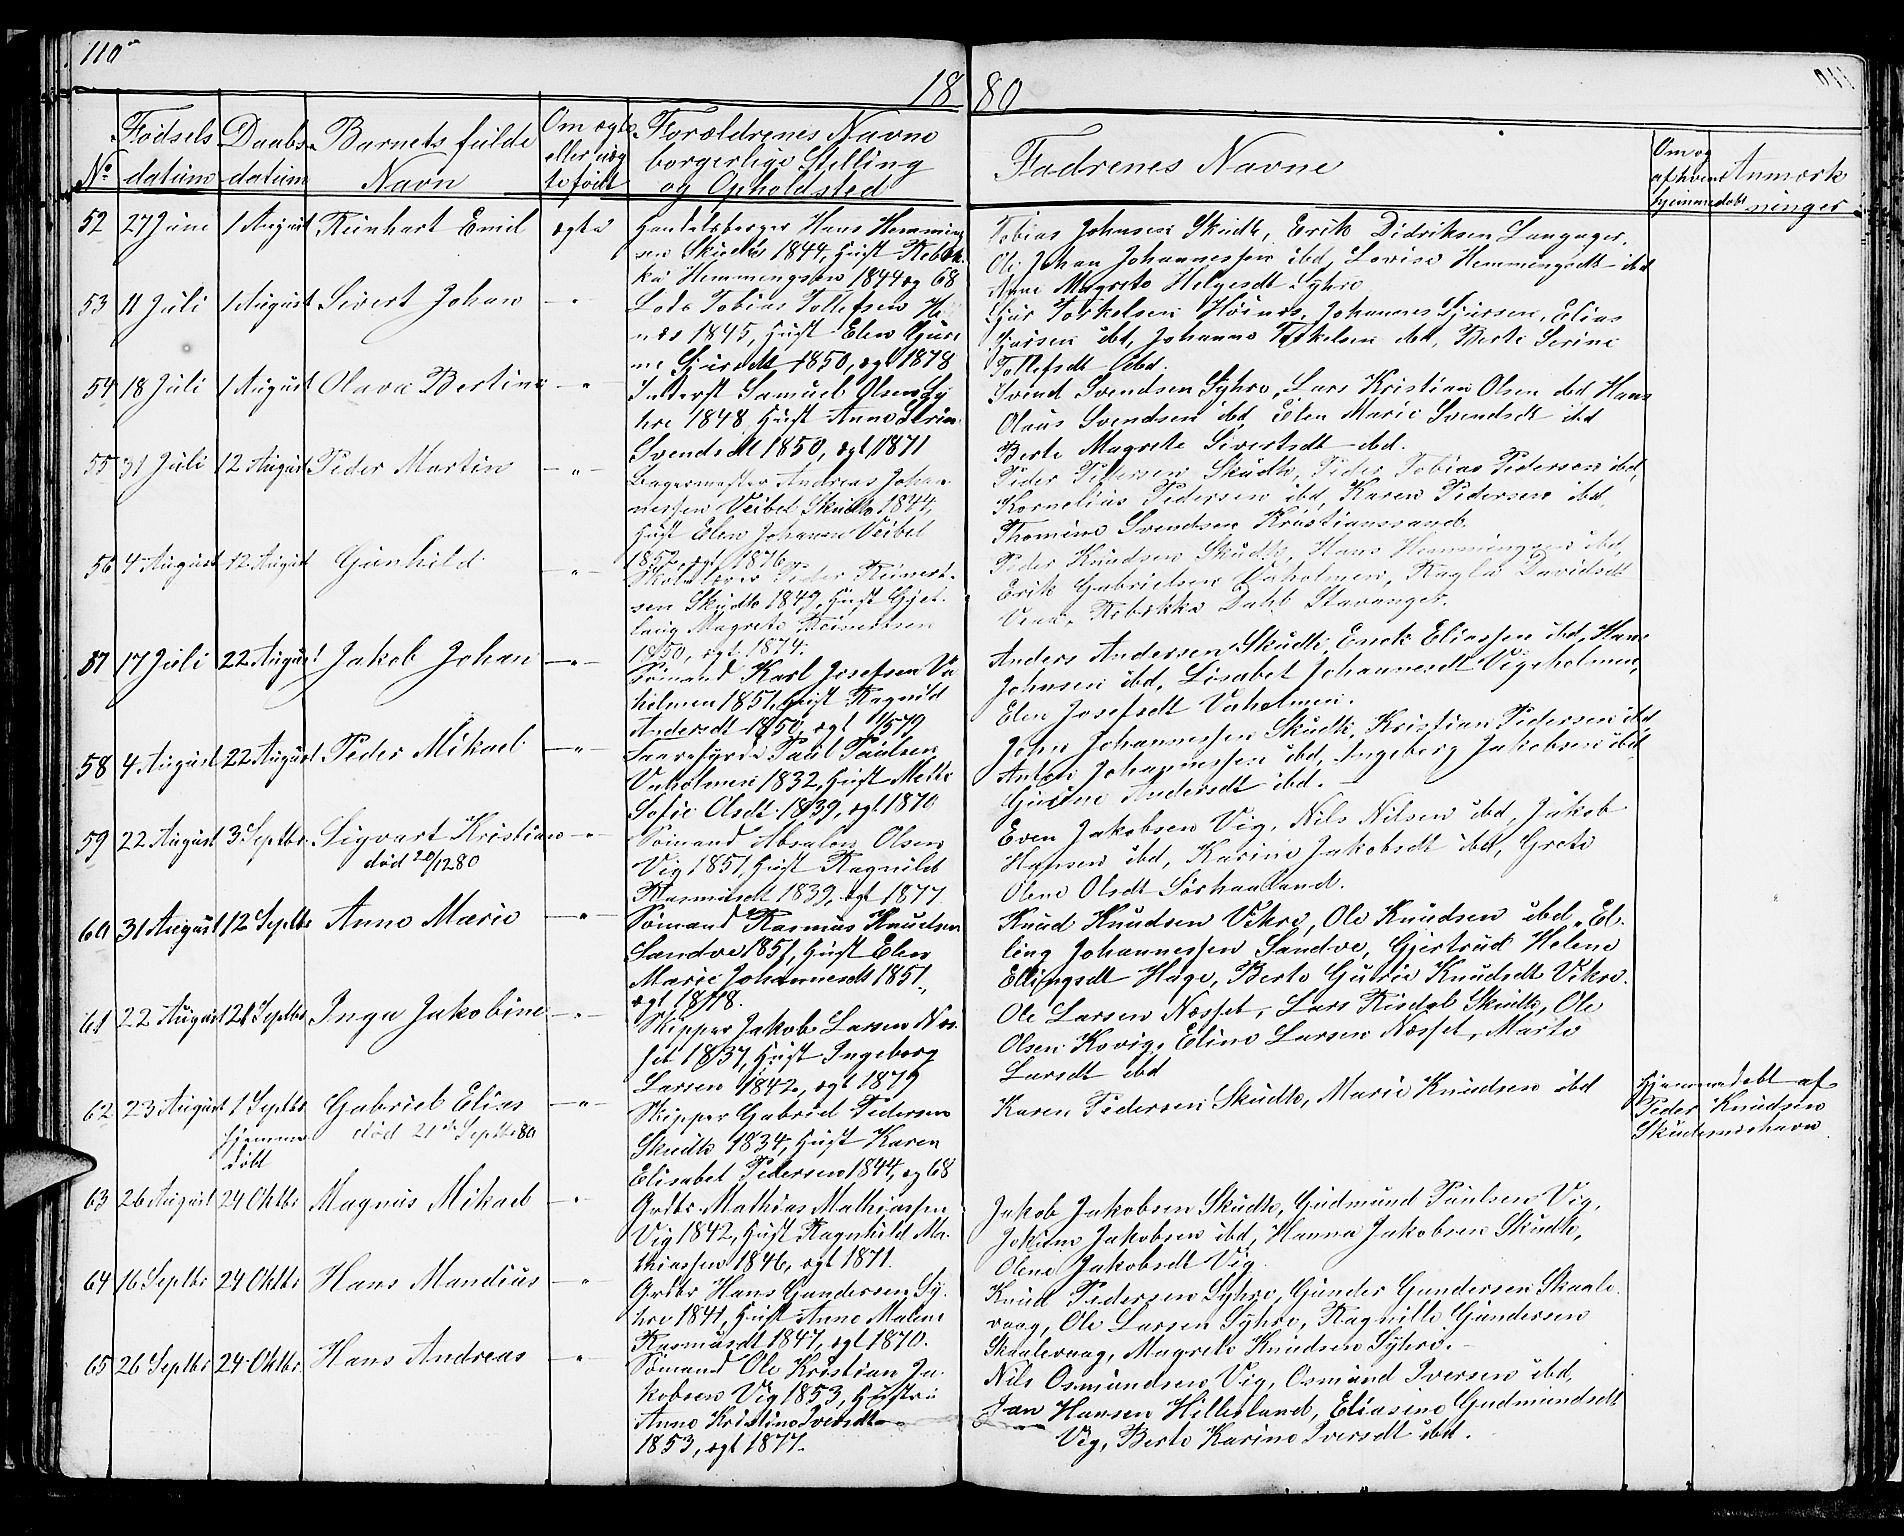 110
18 80
Fødsels Daabs- Barnets fulde Om ægte Forældrenes Navne
eller uæg borgerlige Stilling Fadrenes Navne Om og
No datum datum Navn te født og Opholdsted af hvem Anmærk
hjemmedøbt ninger
52 27 Juni 1 August Reinhart Emil ægte Handelsborger Hans Hemming
sen Skudes 1844, Hust Rebek
ka Hemmingsen 1844 æg 68
Tobias Johnsen Skudh, Erik Didriksen Langager,
Ole Johan Johannessen ibd, Lovise Hemmingsdt ibd
Ane Magrete Helgesdt Syhre
53 11 Juli 1 August Sivert Johan — " Lods Tobias Tollefsen Hö
næs 1845, Hust Elen Gjuri
ne Sjursdt 1850, ægt 1878
Sjur Torkelsen Höines, Johannes Sjursen, Elias
Sjursen ibd, Johanne Torkelsen ibd, Berte Serine
Tollefsdt ibd.
54 18 Juli 1 August Olava Bertine — " Inderst Samuel Olsen Sy
hre 1848, Hust Anne Serine
Svendsdt 1850, ægt 1871
Svend Svendsen Syhre, Lars Kristian Olsen ibd, Hans
Olaus Svendsen ibd, Elen Marie Svendsdt ibd
Berte Magrete Sivertsdt ibd.
55 31 Juli 12 August Peder Martin — " — Bagermester Andreas Johan
nessen Veibel Skudh 1844,
Hust Elen Johanna Veibel
1852, ægt 1876.
Peder Pedersen Skudh, Peder Tobias Pedersen ibd,
Kornelius Pedersen ibd, Karen Pedersen ibd.
Thomine Svendsen Kristianssand.
56 4 August 12 August Gunhild — " — Skolelærer Peder Reinert-
sen Skudh 1849, Hust Gjet
laug Magrete Reinertsen
1850, ægt 1874.
Peder Knudsen Skudh, Hans Hemmingsen ibd,
Erik Gabrielsen Vaholmen, Ragla Davidsdt
Vea, Rebekka Dahl Stavanger.
57 17 Juli 22 August Jakob Johan — " — Sömand Karl Josefsen Va
holmen 1851, Hust Ragnild
Andersdt 1850, ægt 1/5 79
Anders Andersen Skudh, Enok Eliassen ibd, Hans
Johnsen ibd, Lisabet Johannesdt Vigeholmen,
Elen Josefsdt Vaholmen.
58 4 August 22 August Peder Mikael — " — Paul Paulsen
Vaholmen 1832, Hust Mette
Sofie Olsdt 1839, ægt 1870
John Johannessen Skudh, Kristian Pedersen ibd
Anton Johannessen ibd, Ingeborg Jakobsen ibd
Gurine Andersdt ibd.
59 22 August 3 Septbr Sigvart Kristian — " — Sömand Absalon Olsen
død 20/12 80
Vig 1851, Hust Ragnild
Rasmusdt 1839, ægt 1877.
Even Jakobsen Vig, Nils Nilsen ibd, Jakob
Hansen ibd, Karine Jakobsdt ibd, Grete
Olene Olsdt Sörhaaland.
60 31 August 12 Septbr Anne Marie — " — Sömand Rasmus Knudsen
Sandve 1851, Hust Elen
Marie Johannesdt 1851,
ægt 1878.
Knud Knudsen Vikre, Ole Knudsen ibd, El-
ling Johannessen Sandve, Gjertrud Helene
Ellingsdt Hage, Berte Gurie Knudsdt Vikre.
61 22 August 12 Septbr Inga Jakobine — " — Skipper Jakob Larsen Næs
set 1837, Hust Ingeborg
Larsen 1842, ægt 1879
Ole Larsen Næsset, Lars Risdal Skudh, Ole
Olsen Kovig, Eline Larsen Næsset, Marte
Larsdt ibd
62 23 August 1 Septbr Gabriel Elias — " — Skipper Gabriel Pedersen
hjemme død 21de Septbr 80
døbt
Skudh 1834, Hust Karen
Elisabet Pedersen 1844, æg 68
Karen Pedersen Skudh, Marie Knudsen ibd
Hjemmedøbt af
Peder Knudsen
Skudesneshavn
63 26 August 24 Oktbr Magnus Mikael — " Grdbr Mathias Mathiassen
Vig 1842, Hust Ragnhild Ma-
thiassen 1846, ægt 1871.
Jakob Jakobsen Skudh, Gudmund Paulsen Vig,
Jokum Jakobsen ibd, Hanna Jakobsen Skudh,
Olene Jakobsdt Vig.
64 16 Septbr 24 Oktbr Hans Mandius — " Grdbr Hans Gundersen Sy-
hre 1841, Hust Anne Malene
Rasmusdt 1847, ægt 1870.
Knud Pedersen Syhre, Gunder Gundersen Skaale
vaag, Ole Larsen Syhre, Ragnille Gundersen
Skaalevaag, Magrete Knudsen Syhre.
65 26 Septbr 24 Oktbr Hans Andreas " Sömand Ole Kristian Ja-
kobsen Vig 1853, Hustru
Anne Kristine Iversdt
1853, ægt 1877.
Nils Osmundsen Vig, Osmund Iversen ibd,
Jan Hansen Hillesland, Eliasine Gudmundsdt
Vig, Berte Karine Iversdt ibd.